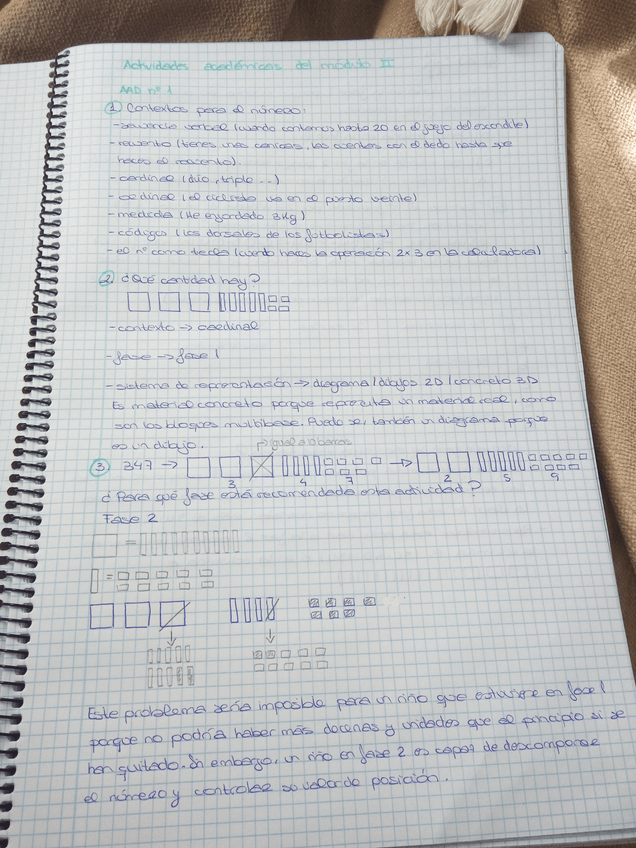 Actividades académicas del módulo II
AAD nº 1
① Contextos para el número:
- secuencia verbal (cuando contamos hasta 20 en el juego del escondite)
- recuento (tienes unas canicas, las cuentas con el dedo hasta que
haces el recuento).
- cardinal (dúo, triple...)
- ordinal (el ciclista va en el puesto veinte)
- medida (He engordado 3Kg)
- códigos (los dorsales de los futbolistas)
- el nº como tecla (cuando haces la operación 2x3 en la calculadora)
② ¿Qué cantidad hay?
- contexto → cardinal
- fase → fase 1
- sistema de representación → diagrama/dibujos 2D/concreto 3D
Es material concreto porque representa un material real, como
son los bloques multibase. Puede ser también un diagrama porque
es un dibujo.
igual a barras
③ 347 →
3 4 7 → 2 5 9
¿Para qué fase está recomendada esta actividad?
Fase 2
=
=
Este problema sería imposible para un niño que estuviese en fase 1
porque no podría haber más decenas y unidades que al principio si se
han quitado. Sin embargo, un niño en fase 2 es capaz de descomponer
el número y controlar su valor de posición.